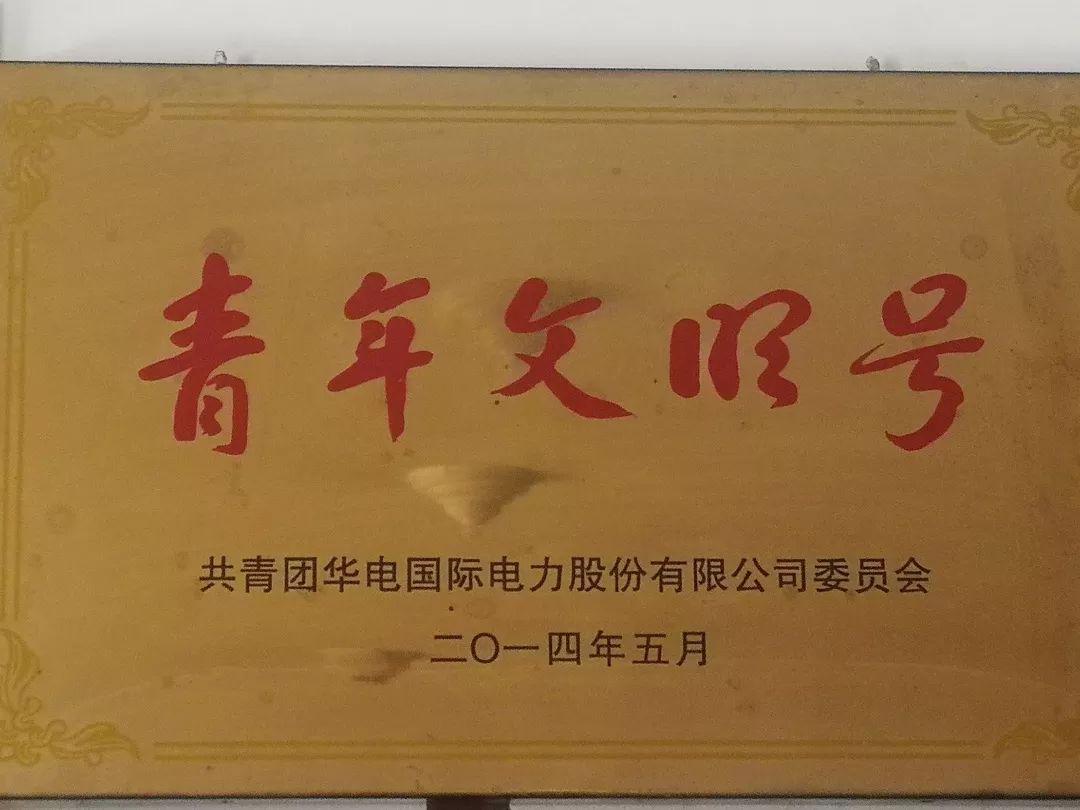 青年文明号
共青团华电国际电力股份有限公司委员会
二〇一四年五月